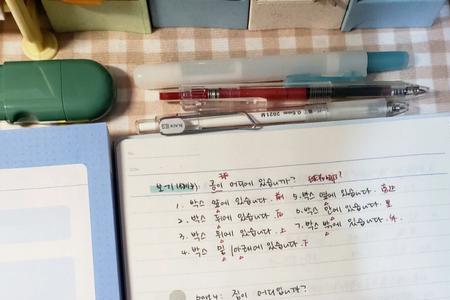 보기(예시): 공이 어디에 있습니까?
1. 박스 앞에 있습니다. 前 5. 박스 옆에 있습니다.
2. 박스 뒤에 있습니다. 后 6. 박스 안에 있습니다. 里
3. 박스 위에 있습니다. 上 7. 박스 밖에 있습니다. 外
4. 박스 밑/아래에 있습니다. 下
집이 어디입니까?